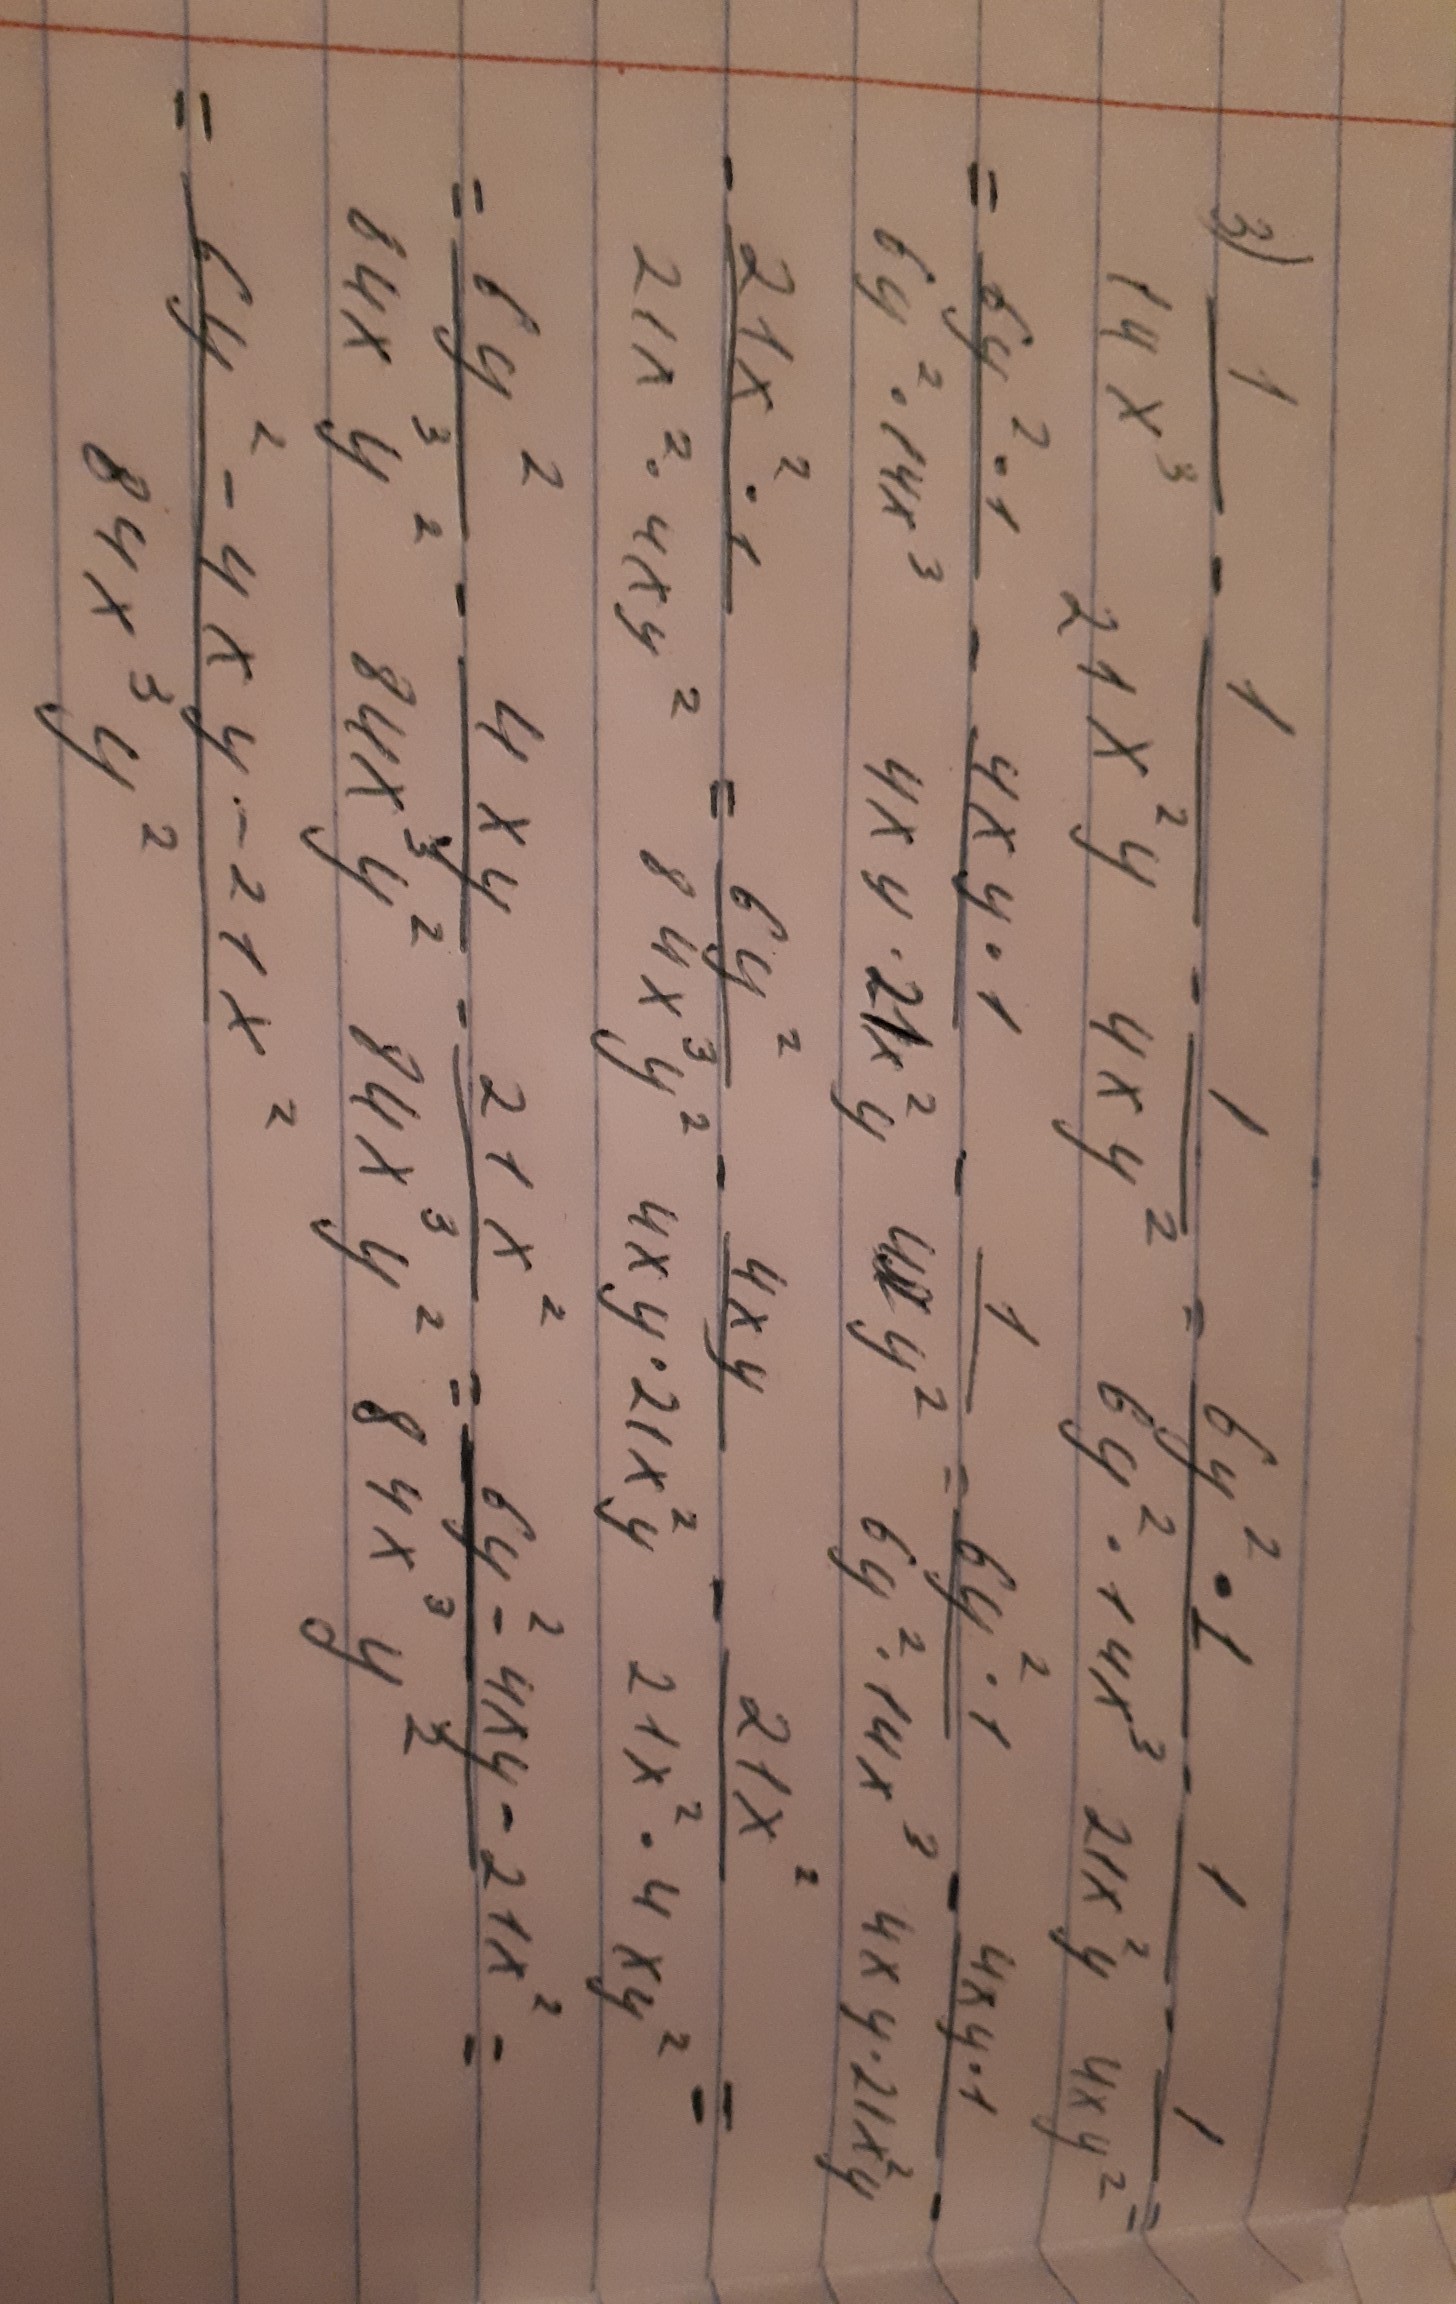 3) 1/14x³ - 1/21x²y - 1/4xy² = 6y²·1/6y²·14x³ - 1/21x²y - 1/4xy² =
= 6y²·1/6y²·14x³ - 4xy·1/4xy·21x²y - 1/4xy² = 6y²·1/6y²·14x³ - 4xy·1/4xy·21x²y -
- 21x²·1/21x²·4xy² = 6y²/84x³y² - 4xy/4xy·21x²y - 21x²/21x²·4xy² =
= 6y²/84x³y² - 4xy/84x³y² - 21x²/84x³y² = 6y²-4xy-21x²/84x³y² =
= 6y²-4xy-21x²/84x³y²